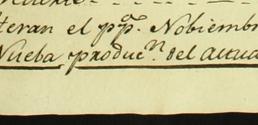 teran el pp.º Nobiembr
Nueba produc.n del actua